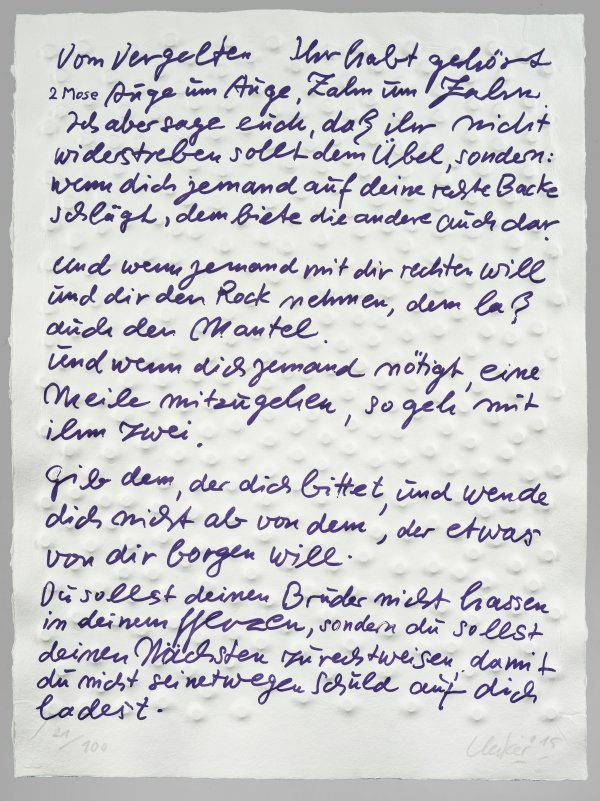 Vom Vergelten Ihr habt gehört
2 Mose Auge um Auge, Zahn um Zahn
Ich aber sage euch, daß ihr nicht
widerstreben sollt dem Übel, sondern:
wenn dich jemand auf deine rechte Backe
schlägt, dem biete die andere auch dar.
und wenn jemand mit dir rechten will
und dir den Rock nehmen, dem laß
auch den Mantel.
und wenn dich jemand nötigt, eine
Meile mitzugehen, so geh mit
ihm zwei.
Gib dem, der dich bittet, und wende
dich nicht ab von dem, der etwas
von dir borgen will.
Du sollst deinen Bruder nicht hassen
in deinem Herzen, sondern du sollst
deinen Nächsten zurechtweisen, damit
du nicht seinetwegen Schuld auf dich
ladest.
21/100 Uecker 15